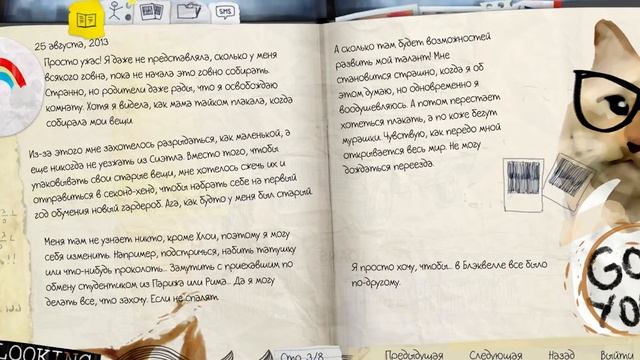 SMS
25 августа, 2013
Просто ужас! Я даже не представляла, сколько у меня
всякого говна, пока не начала это говно собирать.
Странно, но родители даже рады, что я освобождаю
комнату. Хотя я видела, как мама тайком плакала, когда
собирала мои вещи.
Из-за этого мне захотелось разрыдаться, как маленькой, а
еще никогда не уезжать из Сиэтла. Вместо того, чтобы
упаковывать свои старые вещи, мне хотелось сжечь их и
отправиться в секонд-хенд, чтобы набрать себе на первый
год обучения новый гардероб. Ага, как будто у меня был старый.
Меня там не узнает никто, кроме Хлои, поэтому я могу
себя изменить. Например, подстричься, набить татушку
или что-нибудь проколоть... Замутить с приехавшим по
обмену студентом из Парижа или Рима... Да я могу
делать все, что захочу. Если не спалят.
А сколько там будет возможностей
развить мой талант! Мне
становится страшно, когда я об
этом думаю, но одновременно я
воодушевляюсь. А потом перестает
хотеться плакать, а по коже бегут
мурашки. Чувствую, как передо мной
открывается весь мир. Не могу
дождаться переезда.
Я просто хочу, чтобы... в Блэквелле все было
по-другому.
GO
YO
LOOKING
Стр. 3/8
Предыдущая Следующая Назад Выйти